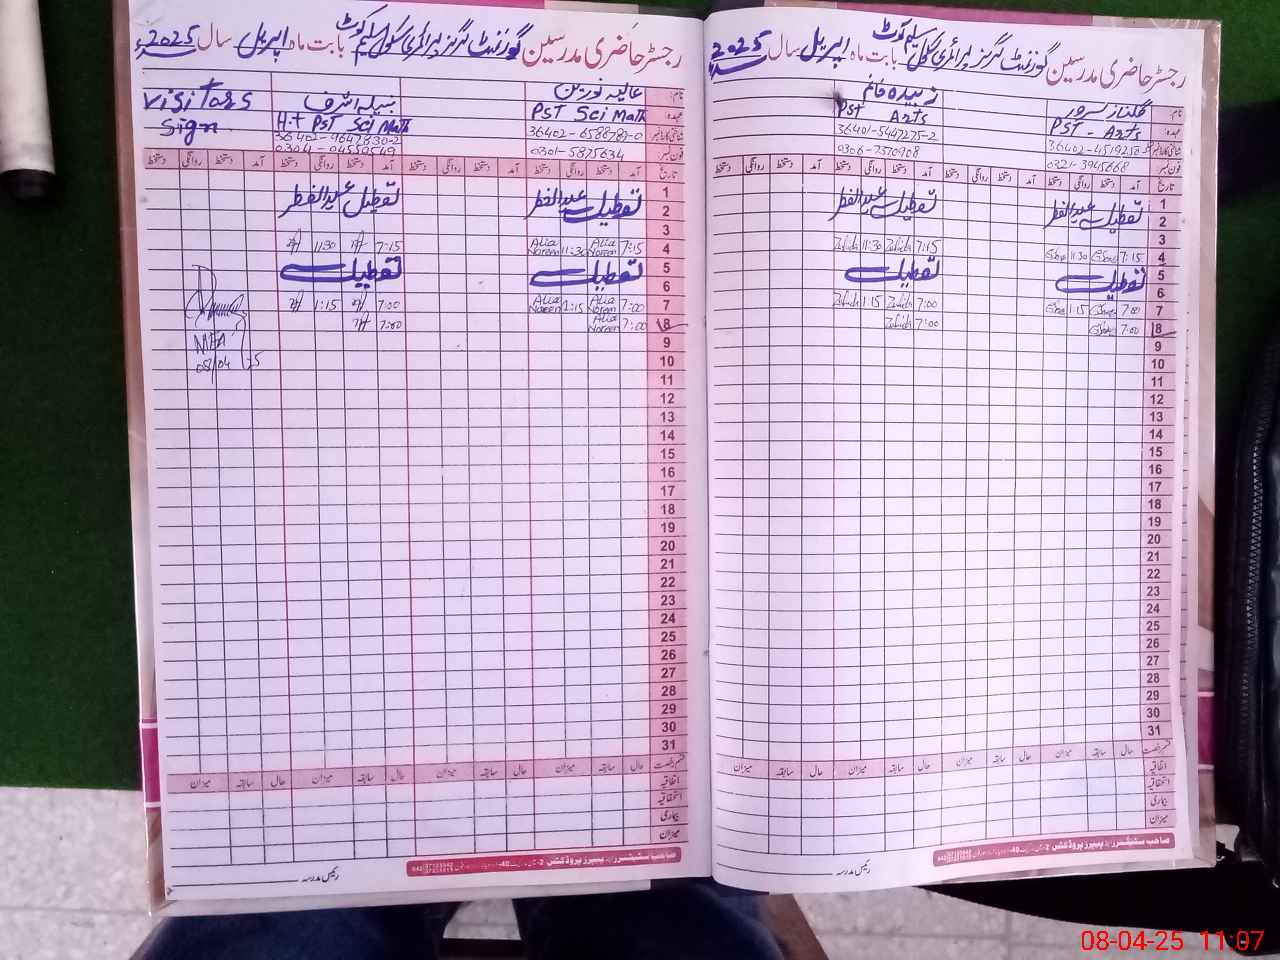 رجسٹر حاضری مدرسین گورنمنٹ گرلز پرائمری سکول سلیم کوٹ بابت ماہ اپریل سال 2025
نام: گلناز سرور
زبیدہ خانم
عہدہ: PST - Arts
PST Arts
شناختی کارڈ نمبر
36401-5447275-2
فون نمبر 0321-3945668
0306-7370908
تاریخ آمد دستخط روانگی دستخط آمد دستخط روانگی دستخط آمد دستخط روانگی دستخط آمد دستخط روانگی دستخط
1
2 تعطیل عیدالفطر تعطیل عیدالفطر
3
4 7:15 11:30 7:15 Zubida 11:30 Zubida
5 تعطیل تعطیل
6
7 7:00 1:15 7:00 Zubida 1:15 Zubida
8 7:00 7:00 Zubida
9
10
11
12
13
14
15
16
17
18
19
20
21
22
23
24
25
26
27
28
29
30
31
قسم رخصت حال سابقہ میزان حال سابقہ میزان حال سابقہ میزان حال سابقہ میزان
اتفاقیہ
استحقاقیہ
بیماری
میزان
رئیس مدرسہ
رجسٹر حاضری مدرسین گورنمنٹ گرلز پرائمری سکول سلیم کوٹ بابت ماہ اپریل سال 2025
نام: عالیہ نورین
نبیلہ اشرف
VISITors
Sign
عہدہ: PST Sci Math
H.t PST Sci Math
شناختی کارڈ نمبر 36402-6588787-0
36402-9647830-2
فون نمبر 0301-5875634
0304-04559549
تاریخ آمد دستخط روانگی دستخط آمد دستخط روانگی دستخط آمد دستخط روانگی دستخط آمد دستخط روانگی دستخط
1
2 تعطیل عیدالفطر تعطیل عیدالفطر
3
4 7:15 Alia Noreen 11:30 Alia Noreen 7:15 11:30
5 تعطیل تعطیل
6
7 7:00 Alia Noreen 1:15 Alia Noreen 7:00 1:15
8 7:00 Alia Noreen 7:00
MEA
08/04/25
9
10
11
12
13
14
15
16
17
18
19
20
21
22
23
24
25
26
27
28
29
30
31
قسم رخصت حال سابقہ میزان حال سابقہ میزان حال سابقہ میزان حال سابقہ میزان
اتفاقیہ
استحقاقیہ
بیماری
میزان
رئیس مدرسہ
08-04-25 11:07